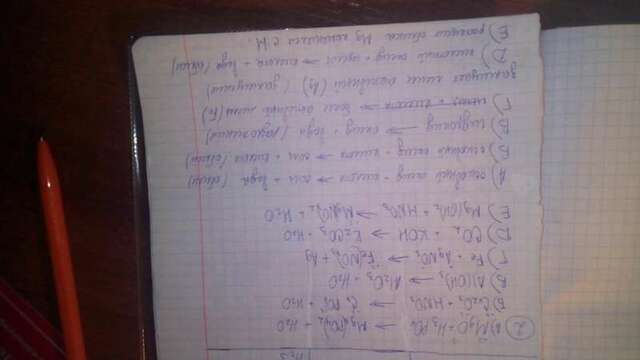 H₂S
2) А) MgO + H₃PO₄ → Mg₃(PO₄)₂ + H₂O
Б) Cr₂O₃ + HNO₃ → + H₂O
В) Al(OH)₃ → Al₂O₃ + H₂O
Г) Fe + AgNO₃ → Fe(NO₃)₂ + Ag
Д) CO₂ + KOH → K₂CO₃ + H₂O
Е) Mg(OH)₂ + HNO₃ → Mg(NO₃)₂ + H₂O
А) основный оксид + кислота → соль + вода (обмен)
Б) основный оксид + кислота → соль + кислота (обмен)
В) гидроксид → оксид + вода (разложения)
Г) → более активный металл (Fe)
замещает менее активный (Ag) (замещения)
Д) кислотный оксид + щелоч → кислота + вода (обмен)
Е) реакция обмена Mg поменялся с H.